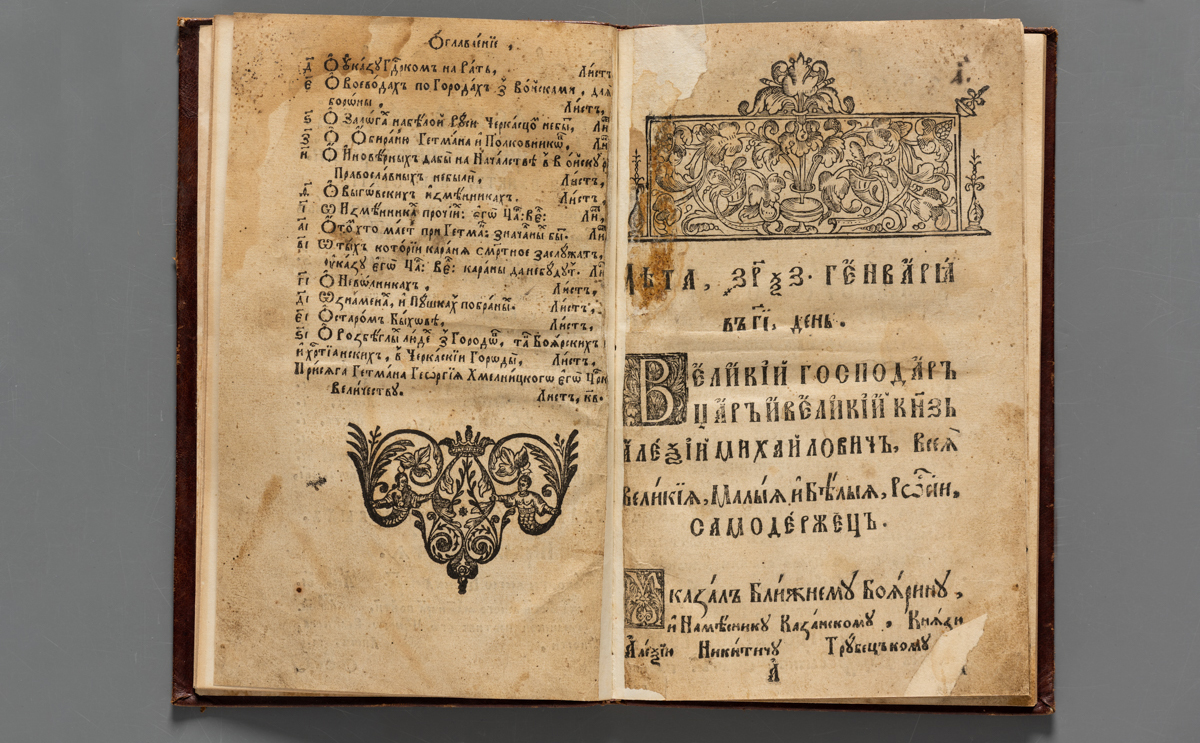 Ѻглавле́нїе ,
д҃ Ѻ Ꙋказꙋ Гд҃рком на Рать, Листъ
є҃ Ѻ Воеводахъ по Городахъ з Во́йсками, для
боро́ны, Листъ,
ѕ҃ Ѻ Зало́гахъ на Бѣлой Рꙋси Черкасцо́ не бы́, Ли́
з҃ Ѻ Ѻбира́ни Гетма́на и Полковникѡ́, Ли́
и҃ Ѻ Иновѣ́рныхъ дабы на Нача́лствѣ ꙋ Во́йскꙋ
Правосла́вныхъ небыли, Ли́стъ,
ѳ҃ Ѻ Выго́вскихъ и́змѣ́нникахъ. Ли́стъ,
і҃ Ѡ Измѣ́нника прочїи: єгѡ̀ Ца́: Ве́: Ли́,
аі҃ Ѻ то́ хто маетъ при Гетма́: значаны́ бы́. Ли́
ві҃ Ѡ тыхъ кото́рїи кара́ня сме́ртное заслꙋжатъ,
ꙋ́казꙋ єгѡ̀ Ца́: Ве́: ка́раны да небꙋдꙋт. Ли́
гі҃ Ѻ Нево́лникахъ, Ли́стъ,
ді҃ Ѡ знаменах, и Пꙋшках побраны́. Ли́стъ,
єі҃ Ѻ старом Бы́ховѣ, Листъ,
ѕі҃ Ѻ Розбѣглы́ лю́де з Городѡ́, та Боя́рских
и хрⷭ҇тїанских, ꙋ Черкаскїи Горѡды, Ли́стъ,
Присяга Гетма́на Геѡргїя Хмелни́цкогѡ єгѡ̀ Ца́рк
Вели́чествꙋ. Листъ, кв.
а҃.
Лѣта, ЗРѮЗ. ГЕНВА́РІА
въ гі҃, день.
ВЕЛИ́КІЙ ГОСПОДА́РЪ
ЦА́РЬ И ВЕЛИ́КІЙ КН҃ЗЬ
АЛЕѮІЙ МИХАЙЛОВИЧЪ, ВСЕЯ̀
Великїя, Ма́лыя и Бѣ́лыя, Рѡсі́и,
САМОДЕ́РЖЕЦЪ.
Ꙋказалъ Бли́жнемꙋ Боя́ринꙋ,
и Намѣ́сникꙋ Каза́нскомꙋ, Кня́зю
Але́ѯїю Ники́тичꙋ Трꙋбецъкомꙋ
А҃